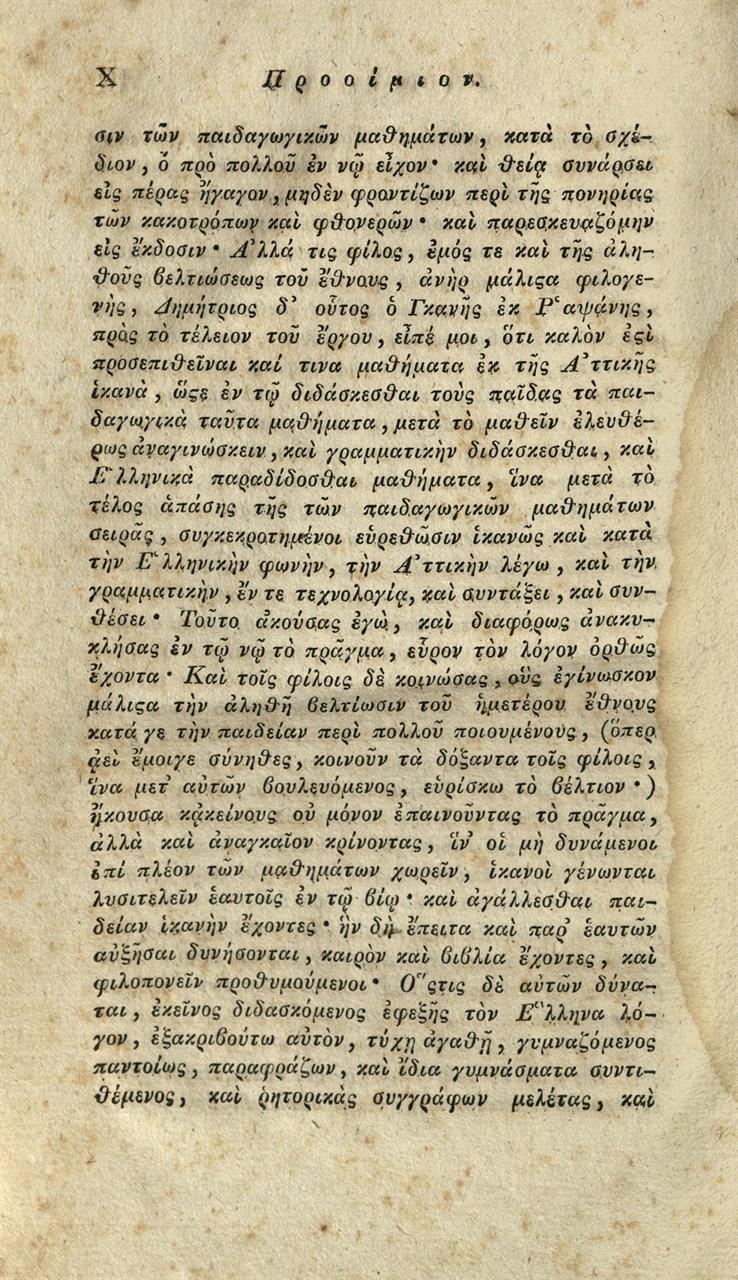 X Προοίμιον.
σιν τῶν παιδαγωγικῶν μαθημάτων, κατὰ τὸ σχέ-
διον, ὃ πρὸ πολλοῦ ἐν νῷ εἶχον· καὶ θείᾳ συνάρσει
εἰς πέρας ἤγαγον, μηδὲν φροντίζων περὶ τῆς πονηρίας
τῶν κακοτρόπων καὶ φθονερῶν· καὶ παρεσκευαζόμην
εἰς ἔκδοσιν· Ἀλλά τις φίλος, ἐμός τε καὶ τῆς ἀλη-
θοῦς βελτιώσεως τοῦ ἔθνους, ἀνὴρ μάλιϛα φιλογε-
νὴς, Δημήτριος δ' οὗτος ὁ Γκανῆς ἐκ Ῥαψάνης,
πρὸς τὸ τέλειον τοῦ ἔργου, εἶπέ μοι, ὅτι καλὸν ἐϛὶ
προσεπιθεῖναι καί τινα μαθήματα ἐκ τῆς Ἀττικῆς
ἱκανὰ, ὥϛε ἐν τῷ διδάσκεσθαι τοὺς παῖδας τὰ παι-
δαγωγικὰ ταῦτα μαθήματα, μετὰ τὸ μαθεῖν ἐλευθέ-
ρως ἀναγινώσκειν, καὶ γραμματικὴν διδάσκεσθαι, καὶ
Ἑλληνικὰ παραδίδοσθαι μαθήματα, ἵνα μετὰ τὸ
τέλος ἁπάσης τῆς τῶν παιδαγωγικῶν μαθημάτων
σειρᾶς, συγκεκροτημένοι εὑρεθῶσιν ἱκανῶς καὶ κατὰ
τὴν Ἑλληνικὴν φωνὴν, τὴν Ἀττικὴν λέγω, καὶ τὴν
γραμματικὴν, ἔν τε τεχνολογίᾳ, καὶ συντάξει, καὶ συν-
θέσει· Τοῦτο ἀκούσας ἐγὼ, καὶ διαφόρως ἀνακυ-
κλήσας ἐν τῷ νῷ τὸ πρᾶγμα, εὗρον τὸν λόγον ὀρθῶς
ἔχοντα· Καὶ τοῖς φίλοις δὲ κοινώσας, οὓς ἐγίνωσκον
μάλιϛα τὴν ἀληθῆ βελτίωσιν τοῦ ἡμετέρου ἔθνους
κατά γε τὴν παιδείαν περὶ πολλοῦ ποιουμένους, (ὅπερ
ἀεὶ ἔμοιγε σύνηθες, κοινοῦν τὰ δόξαντα τοῖς φίλοις,
ἵνα μετ' αὐτῶν βουλευόμενος, εὑρίσκω τὸ βέλτιον·)
ἤκουσα κἀκείνους οὐ μόνον ἐπαινοῦντας τὸ πρᾶγμα,
ἀλλὰ καὶ ἀναγκαῖον κρίνοντας, ἵν' οἱ μὴ δυνάμενοι
ἐπὶ πλέον τῶν μαθημάτων χωρεῖν, ἱκανοὶ γένωνται
λυσιτελεῖν ἑαυτοῖς ἐν τῷ βίῳ· καὶ ἀγάλλεσθαι παι-
δείαν ἱκανὴν ἔχοντες· ἣν δὴ ἔπειτα καὶ παρ' ἑαυτῶν
αὐξῆσαι δυνήσονται, καιρὸν καὶ βιβλία ἔχοντες, καὶ
φιλοπονεῖν προθυμούμενοι· Ὅϛτις δὲ αὐτῶν δύνα-
ται, ἐκεῖνος διδασκόμενος ἐφεξῆς τὸν Ἕλληνα λό-
γον, ἐξακριβούτω αὐτὸν, τύχῃ ἀγαθῇ, γυμναζόμενος
παντοίως, παραφράζων, καὶ ἴδια γυμνάσματα συντι-
θέμενος, καὶ ῥητορικὰς συγγράφων μελέτας, καὶ